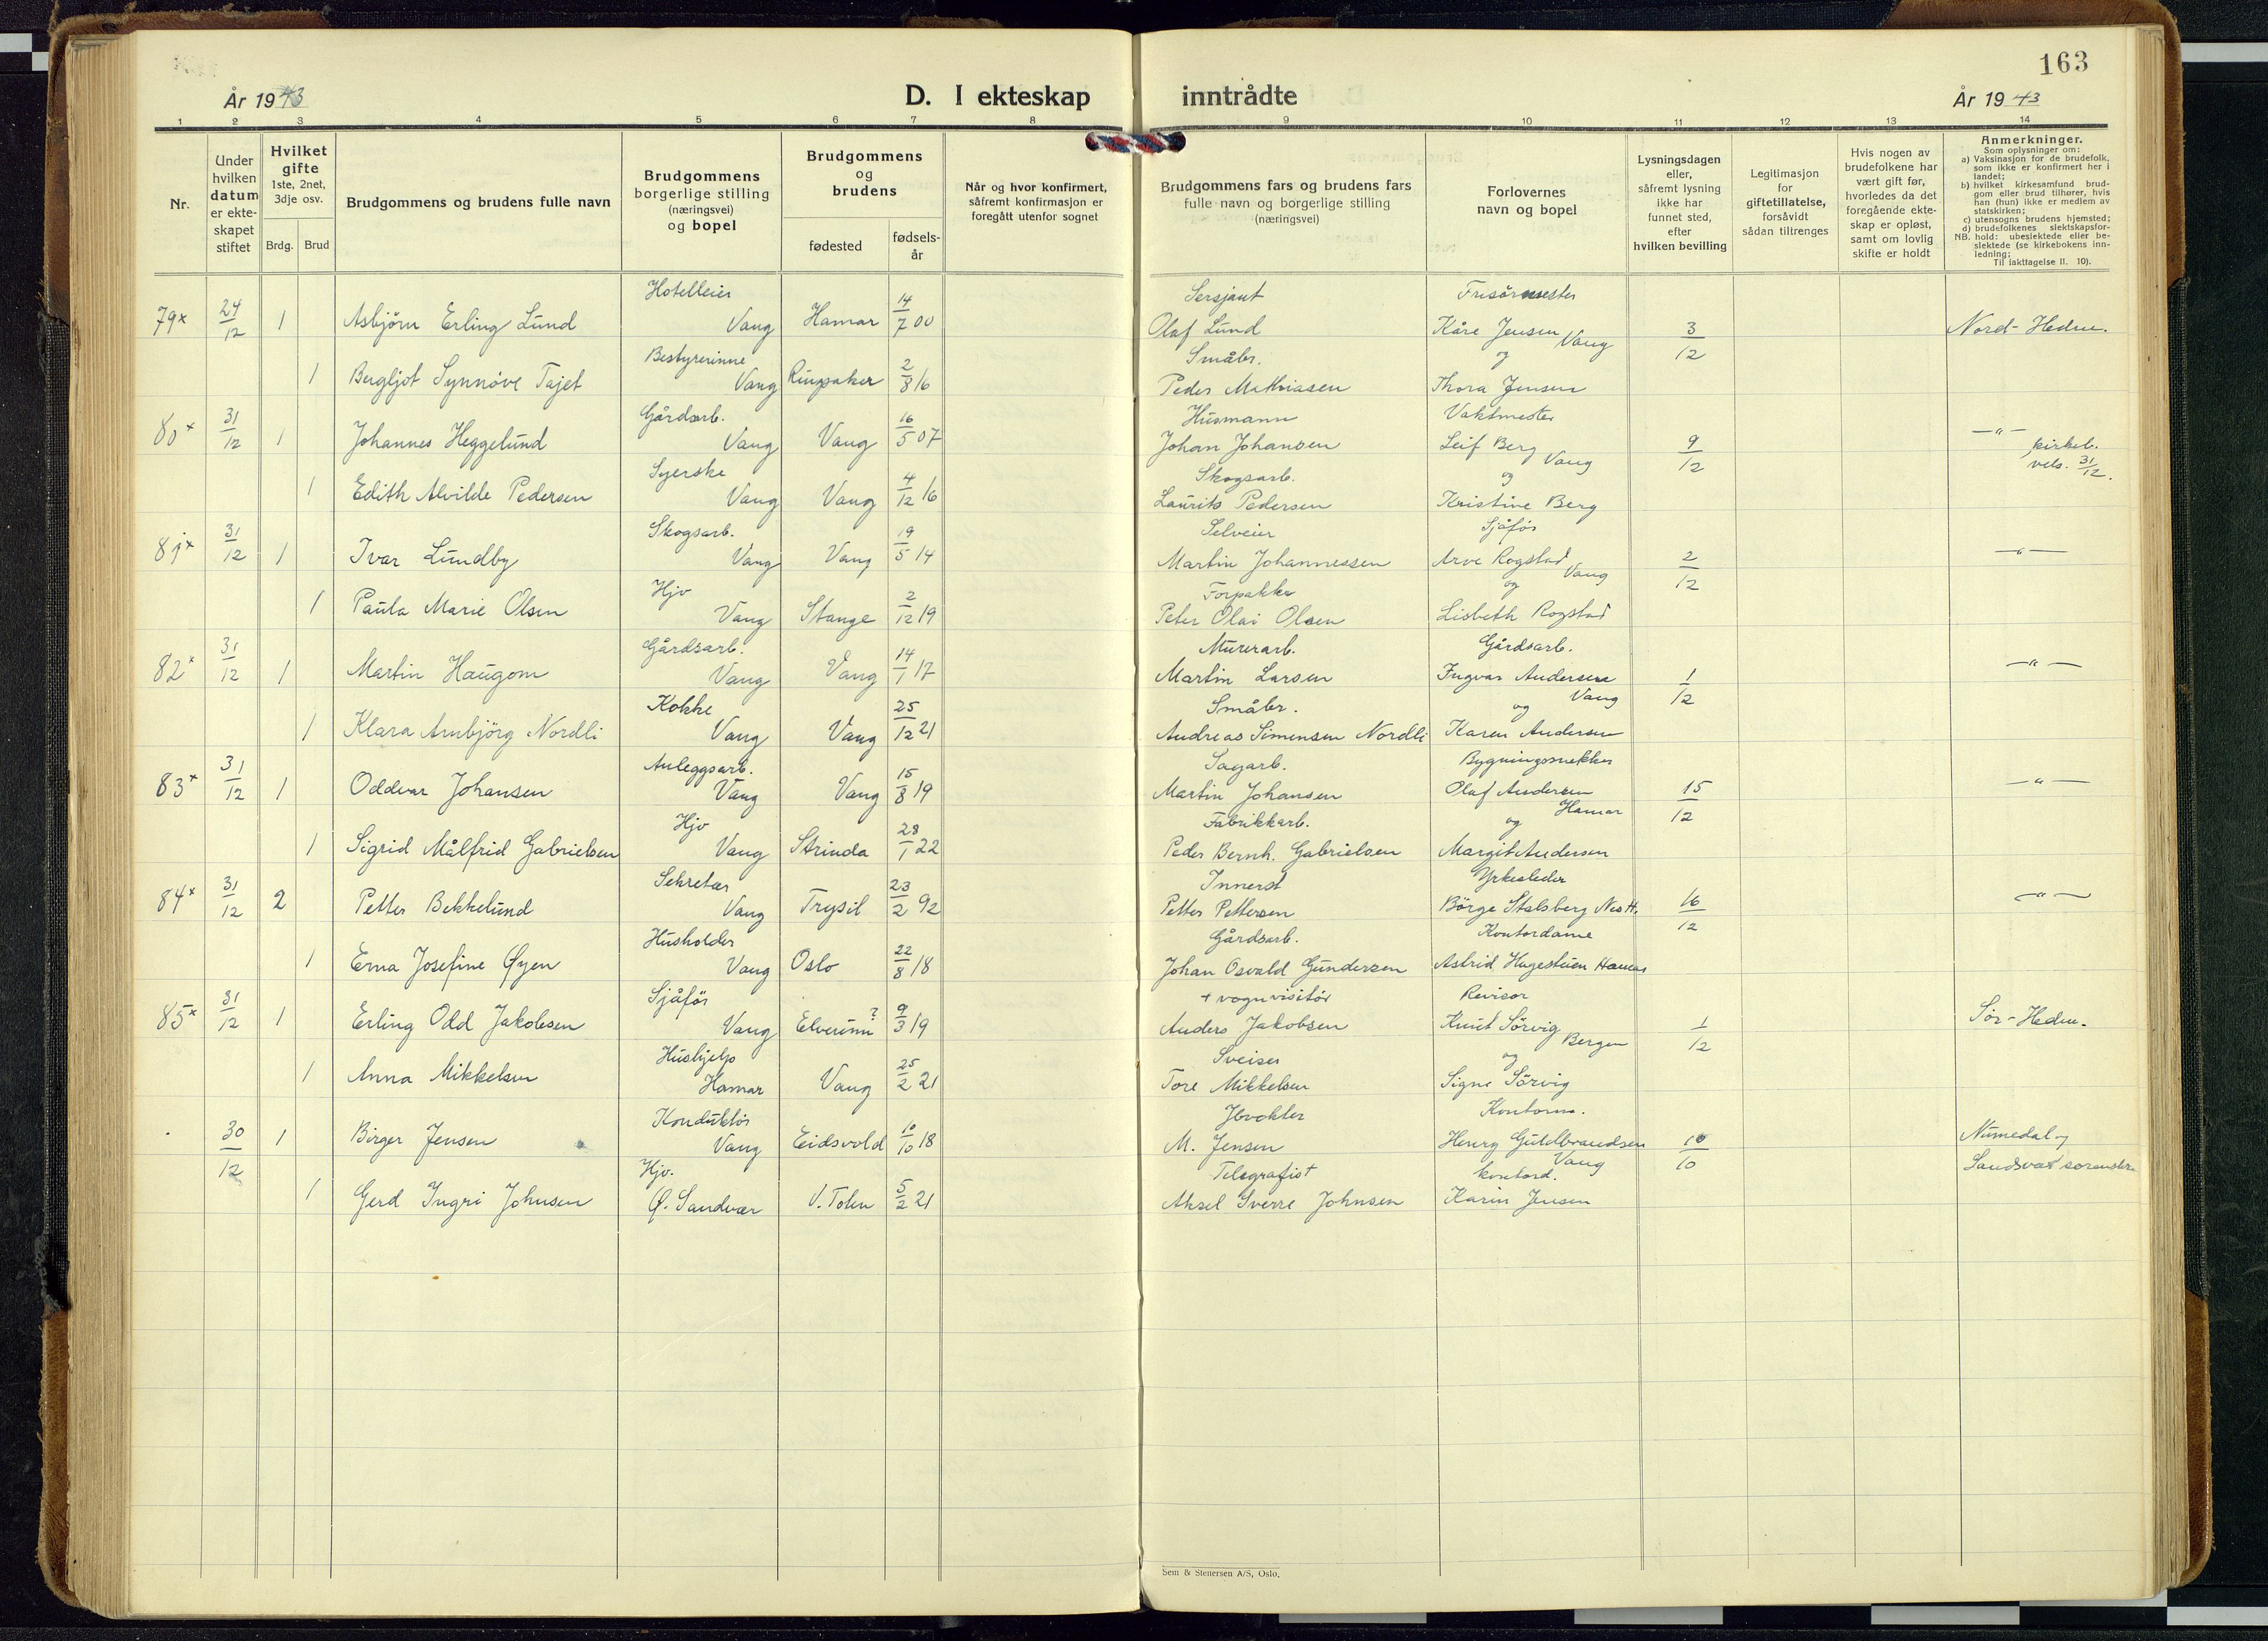 163
År 1943
D. I ekteskap inntrådte
År 1943
1 2 3 4 5 6 7 8 9 10 11 12 13 14
Nr.
Under hvilken datum er ekte-skapet stiftet
Hvilket gifte 1ste, 2net, 3dje osv.
Brdg. Brud
Brudgommens og brudens fulle navn
Brudgommens borgerlige stilling (næringsvei) og bopel
Brudgommens og brudens
fødested
fødsels-år
Når og hvor konfirmert, såfremt konfirmasjon er foregått utenfor sognet
Brudgommens fars og brudens fars fulle navn og borgerlige stilling (næringsvei)
Forlovernes navn og bopel
Lysningsdagen eller, såfremt lysning ikke har funnet sted, efter hvilken bevilling
Legitimasjon for giftetillatelse, forsåvidt sådan tiltrenges
Hvis nogen av brudefolkene har vært gift før, hvorledes da det foregående ekte-skap er opløst, samt om lovlig skifte er holdt
Anmerkninger.
Som oplysninger om:
a) Vaksinasjon for de brudefolk, som ikke er konfirmert her i landet;
b) hvilket kirkesamfund brud-gom eller brud tilhører, hvis han (hun) ikke er medlem av statskirken;
c) utensogns brudens hjemsted;
d) brudefolkenes slektskapsfor-
NB. hold: ubeslektede eller be-slektede (se kirkebokens inn-ledning;
Til iakttagelse II. 10).
Hotelleier Sersjant Frisørmester
79x 24/12 1 Asbjörn Erling Lund Vang Hamar 14/7 00 Olaf Lund Kåre Jensen Vang 3/12 Nord-Hedm.
Bestyrerinne Småbr. og
1 Bergljot Synnöve Tajet Vang Ringsaker 2/8 16 Peder Mathiasen Thora Jensen
Gårdsarb. Husmann Vaktmester
80x 31/12 1 Johannes Heggelund Vang Vang 16/5 07 Johan Johansen Leif Berg Vang 9/12 —"— kirkeb. vels. 31/12.
Syerske Skogsarb. og
1 Edith Alvilde Pedersen Vang Vang 4/12 16 Laurits Pedersen Kristine Berg
Skogsarb. Selveier Sjåför
81x 31/12 1 Ivar Lundby Vang Vang 19/5 14 Martin Johannessen Arve Rogstad Vang 2/12 —"—
Hjv Forpakter og
1 Paula Marie Olsen Vang Stange 2/12 19 Peter Olai Olsen Lisbeth Rogstad
Gårdsarb. Murerarb. Gårdsarb.
82x 31/12 1 Martin Haugom Vang Vang 14/1 17 Martin Larsen Ingvar Andersen Vang 1/12 —"—
Kokke Småbr. og
1 Klara Arnbjörg Nordli Vang Vang 25/12 21 Andreas Simensen Nordli Karen Andersen
Anleggsarb. Sagarb. Bygningssnekker
83x 31/12 1 Oddvar Johansen Vang Vang 15/8 19 Martin Johansen Olaf Andersen Hamar 15/12 —"—
Hjv Fabrikkarb. og
1 Sigrid Målfrid Gabrielsen Vang Strinda 28/1 22 Peder Bernh. Gabrielsen Margit Andersen
Sekretær Innerst Yrkesleder
84x 31/12 2 Petter Bekkelund Vang Trysil 23/2 92 Petter Pettersen Börge Stalsberg Nes H. 16/12 —"—
Husholder Gårdsarb. Kontordame
1 Erna Josefine Øyen Vang Oslo 22/8 18 Johan Osvald Gundersen Astrid Hagestuen Hamar
Sjåför + vognvisitör Revisor
85x 31/12 1 Erling Odd Jakobsen Vang Elverum? 9/3 19 Anders Jakobsen Knut Sörvig Bergen 1/12 Sör-Hedm.
Hushjelp Sveiser og
1 Anna Mikkelsen Hamar Vang 25/2 21 Tore Mikkelsen Signe Sörvig
Konduktör Jbvokter Kontorm.
30/12 1 Birger Jensen Vang Eidsvold 10/10 18 M. Jensen Henry Gudbrandsen Vang 10/10 Numedal og Sandsvær sorenskr.
Hjv. Telegrafist kontord.
1 Gerd Ingri Johnsen Ø. Sandvær V. Toten 5/2 21 Aksel Sverre Johnsen Karin Jensen
Sem & Stenersen A/S, Oslo.